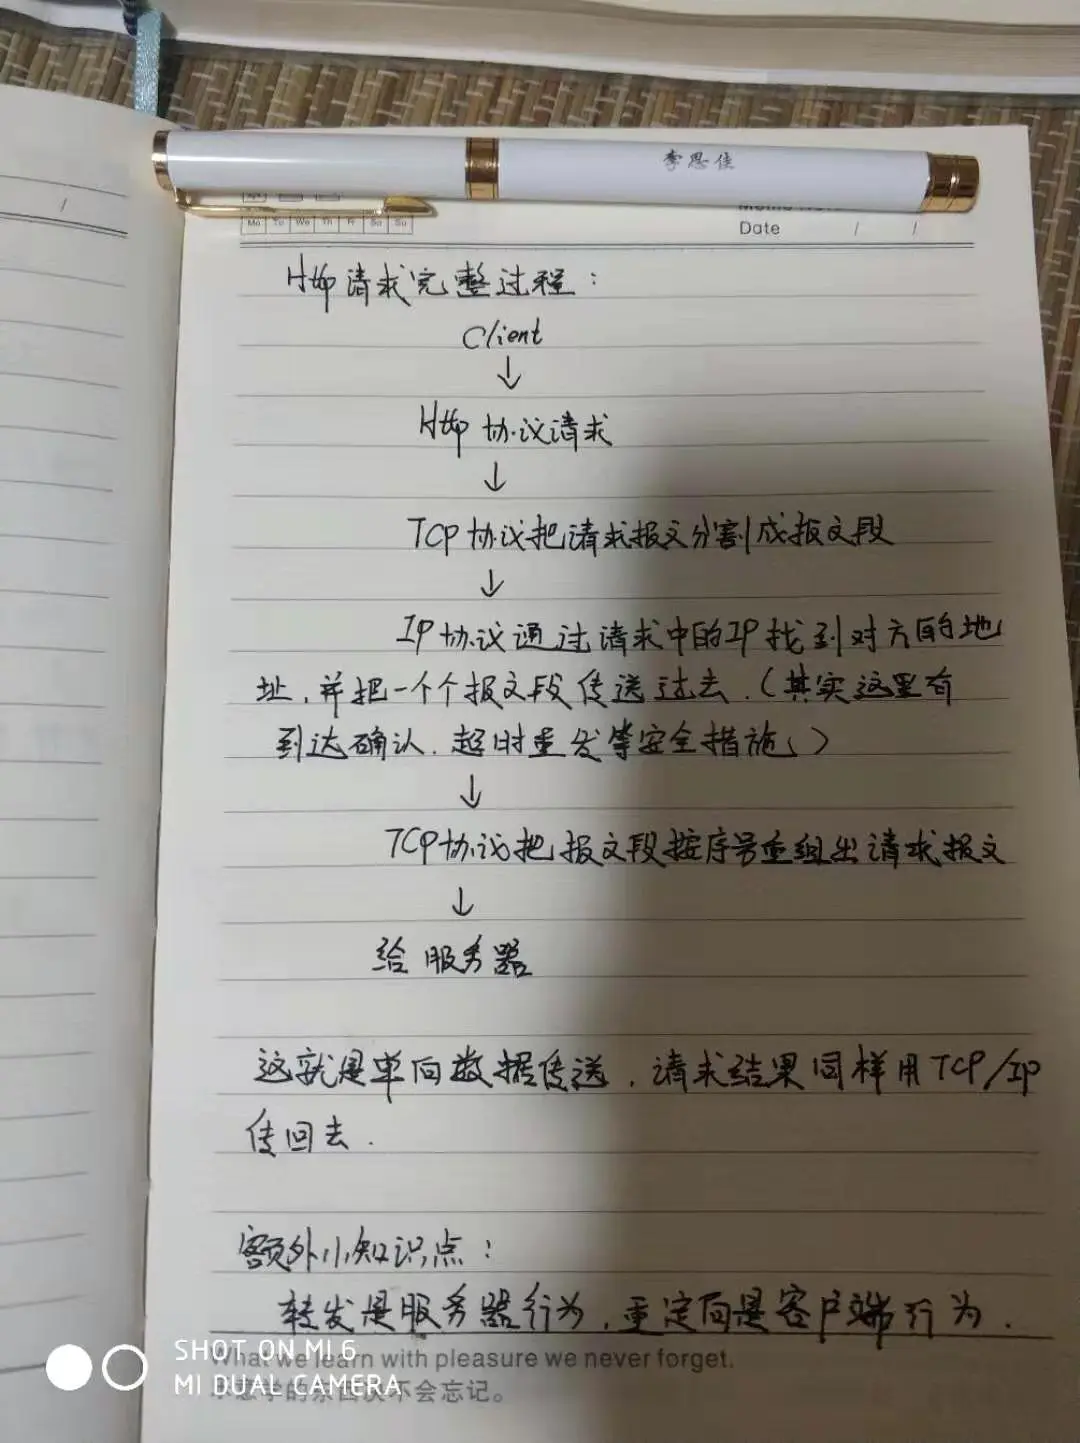 李思佳
Mo Tu We Th Fr Sa Su
Date / /
Http请求完整过程：
Client
↓
Http 协议请求
↓
TCP协议把请求报文分割成报文段
↓
IP协议通过请求中的IP找到对方的地
址，并把一个个报文段传送过去.（其实这里有
到达确认、超时重发等安全措施、）
↓
TCP协议把报文段按序号重组出请求报文
↓
给服务器
这就是单向数据传送，请求结果同样用TCP/IP
传回去.
额外小知识点：
转发是服务器行为，重定向是客户端行为.
SHOT ON MI 6
What we learn with pleasure we never forget.
MI DUAL CAMERA
不会忘记。